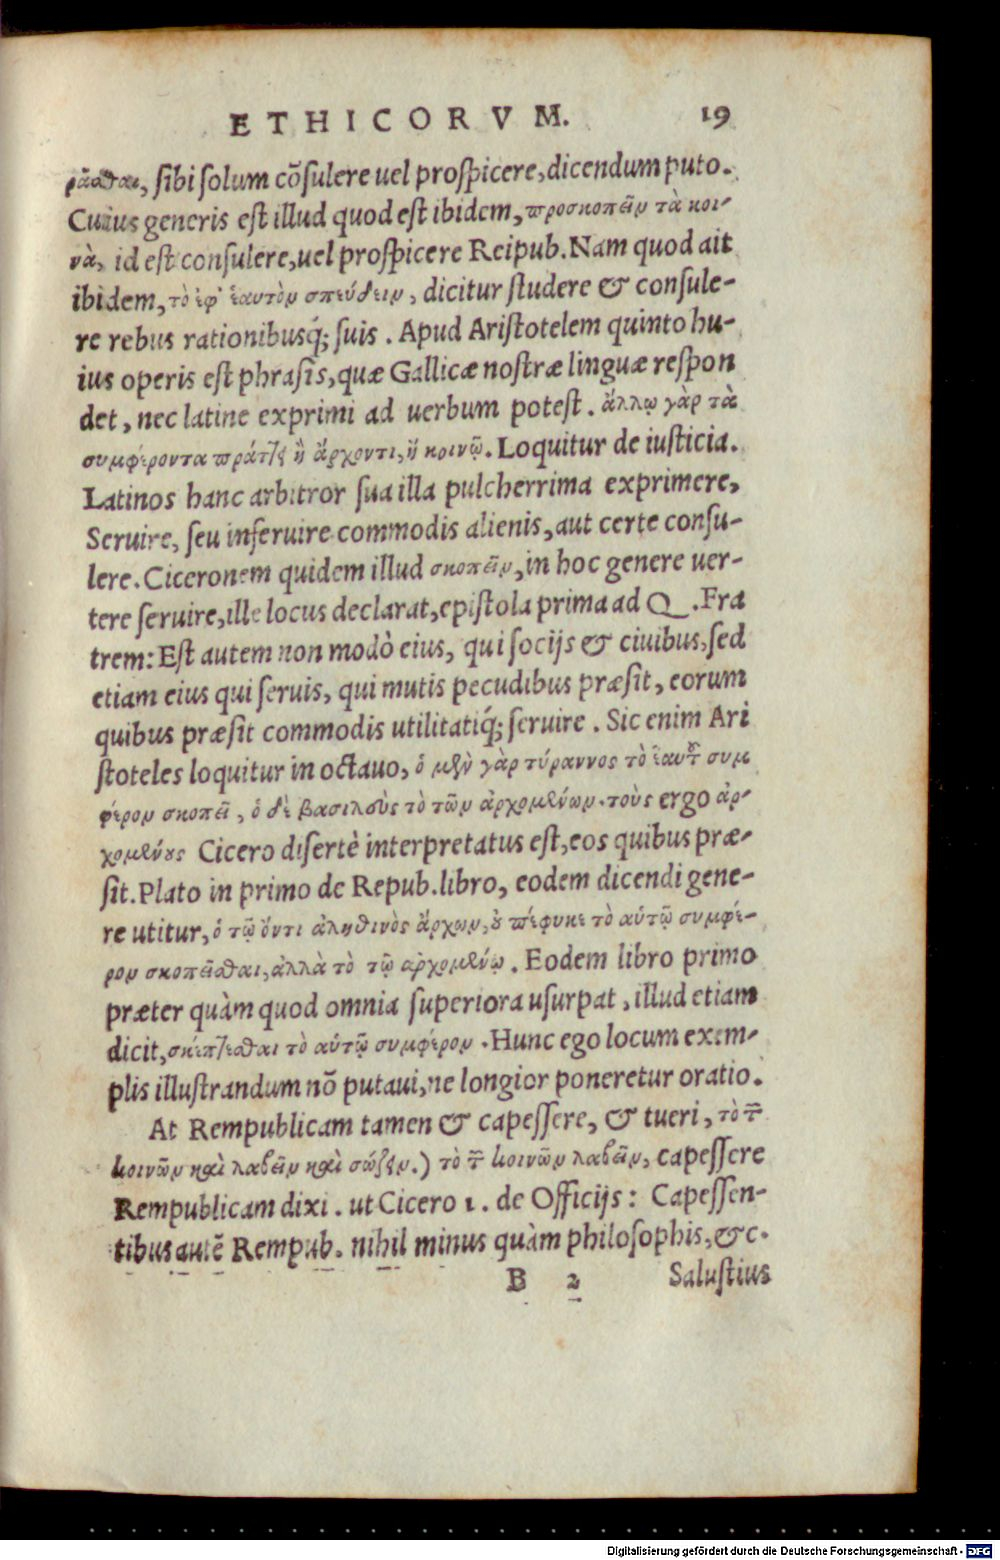 ETHICORVM. 19
ρᾶσθαι, sibi solum cōsulere uel prospicere, dicendum puto.
Cuius generis est illud quod est ibidem, προσκοπεῖν τὰ κοι-
νὰ, id est consulere, uel prospicere Reipub. Nam quod ait
ibidem, τὸ ἐφ' ἑαυτὸν σπεύδειν, dicitur studere & consule-
re rebus rationibusq́; suis. Apud Aristotelem quinto hu-
ius operis est phrasis, quæ Gallicæ nostræ linguæ respon
det, nec latine exprimi ad uerbum potest. ἄλλῳ γὰρ τὰ
συμφέροντα πράττει ἢ ἄρχοντι, ἢ κοινῷ. Loquitur de iusticia.
Latinos hanc arbitror sua illa pulcherrima exprimere,
Seruire, seu inseruire commodis alienis, aut certe consu-
lere. Ciceronem quidem illud σκοπεῖν, in hoc genere uer-
tere seruire, ille locus declarat, epistola prima ad Q. Fra
trem: Est autem non modò eius, qui socijs & ciuibus, sed
etiam eius qui seruis, qui mutis pecudibus præsit, eorum
quibus præsit commodis utilitatiq́; seruire. Sic enim Ari
stoteles loquitur in octauo, ὁ μὲν γὰρ τύραννος τὸ ἑαυτοῦ συμ
φέρον σκοπεῖ, ὁ δὲ βασιλεὺς τὸ τῶν ἀρχομένων. τοὺς ergo ἀρ-
χομένους Cicero disertè interpretatus est, eos quibus præ-
sit. Plato in primo de Repub. libro, eodem dicendi gene-
re utitur, ὁ τῷ ὄντι ἀληθινὸς ἄρχων, οὐ πέφυκε τὸ αὑτῷ συμφέ-
ρον σκοπεῖσθαι, ἀλλὰ τὸ τῷ ἀρχομένῳ. Eodem libro primo
præter quàm quod omnia superiora usurpat, illud etiam
dicit, σκέπτεσθαι τὸ αὑτῷ συμφέρον. Hunc ego locum exem-
plis illustrandum nō putaui, ne longior poneretur oratio.
At Rempublicam tamen & capessere, & tueri, τὸ τῶν
κοινῶν καὶ λαβεῖν καὶ σώζειν.) τὸ τῶν κοινῶν λαβεῖν, capessere
Rempublicam dixi. ut Cicero 1. de Officijs: Capessen-
tibus autē Rempub. nihil minus quàm philosophis, &c.
B 2 Salustius
Digitalisierung gefördert durch die Deutsche Forschungsgemeinschaft - DFG